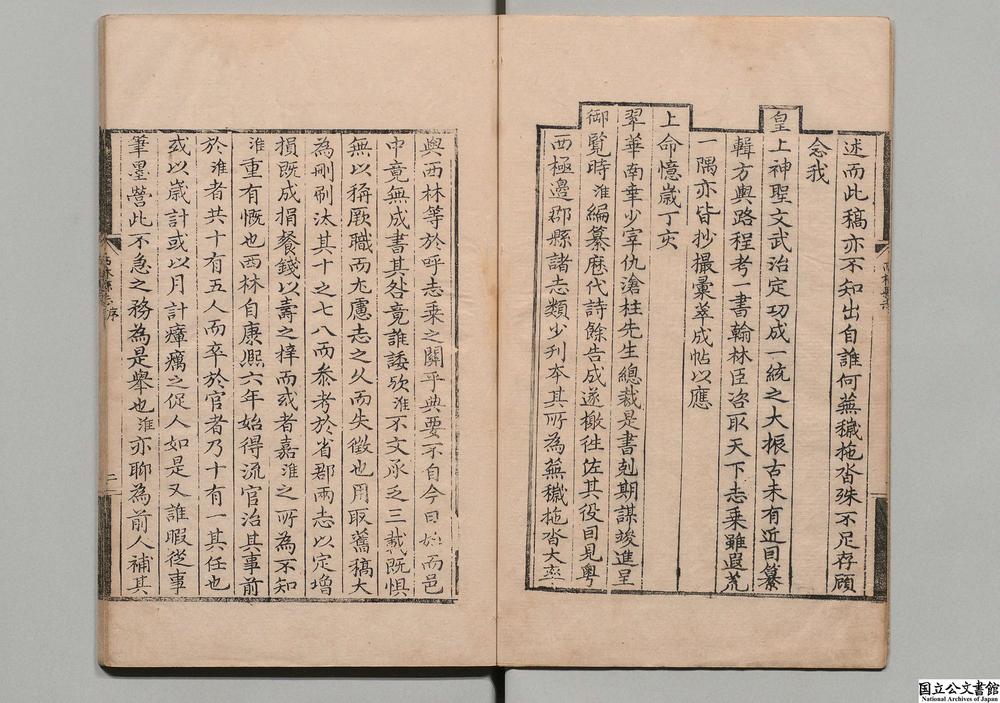 述而此稿亦不知出自誰何蕪穢拖沓殊不足存顧
念我
皇上神聖文武治定功成一統之大振古未有近因纂
輯方輿路程考一書翰林臣咨取天下志乗雖遐荒
一隅亦皆抄撮彙萃成帖以應
上命憶歳丁亥
翠華南幸少宰仇滄柱先生總裁是書剋期謀竣進呈
御覧時淮編纂歴代詩餘告成遂檄徃佐其役因見粤
西極邉郡縣諸志類少刋本其所為蕪穢拖沓大率
與西林等於呼志乗之關乎典要不自今日始而邑
中竟無成書其咎竟誰諉欤淮不文承乏三載既惧
無以稱厥職而尤慮志之久而失徴也用取舊稿大
為刪刷汰其十之七八而叅考於省郡兩志以定増
損既成捐餐錢以壽之梓而或者嘉淮之所為不知
淮重有慨也西林自康熙六年始得流官治其事前
於淮者共十有五人而卒於官者乃十有一其任也
或以歳計或以月計瘴癘之促人如是又誰暇從事
筆墨營此不急之務為是舉也淮亦聊為前人補其
西林縣志序
二
国立公文書館
National Archives of Japan